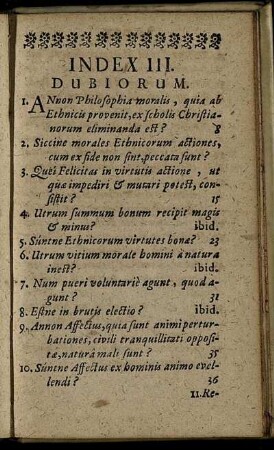 INDEX III.
DUBIORUM.
1. ANnon Philosophia moralis, quia ab
Ethnicis provenit, ex scholis Christia-
norum eliminanda est? 8
2. Siccine morales Ethnicorum actiones,
cum ex fide non sint, peccata sunt?
3. Quei Felicitas in virtutis actione, ut
quæ impediri & mutari potest, con-
sistit? 15
4. Utrum summum bonum recipit magis
& minus? ibid.
5. Súntne Ethnicorum virtutes bonæ? 23
6. Utrum vitium morale homini à natura
inest? ibid.
7. Num pueri voluntariè agunt, quod a-
gunt? 31
8. Estne in brutis electio? ibid.
9. Annon Affectus, quia sunt animi pertur-
bationes, civili tranquillitati opposi-
tæ, naturâ mali sunt? 35
10. Súntne Affectus ex hominis animo evel-
lendi? 36
11. Re-